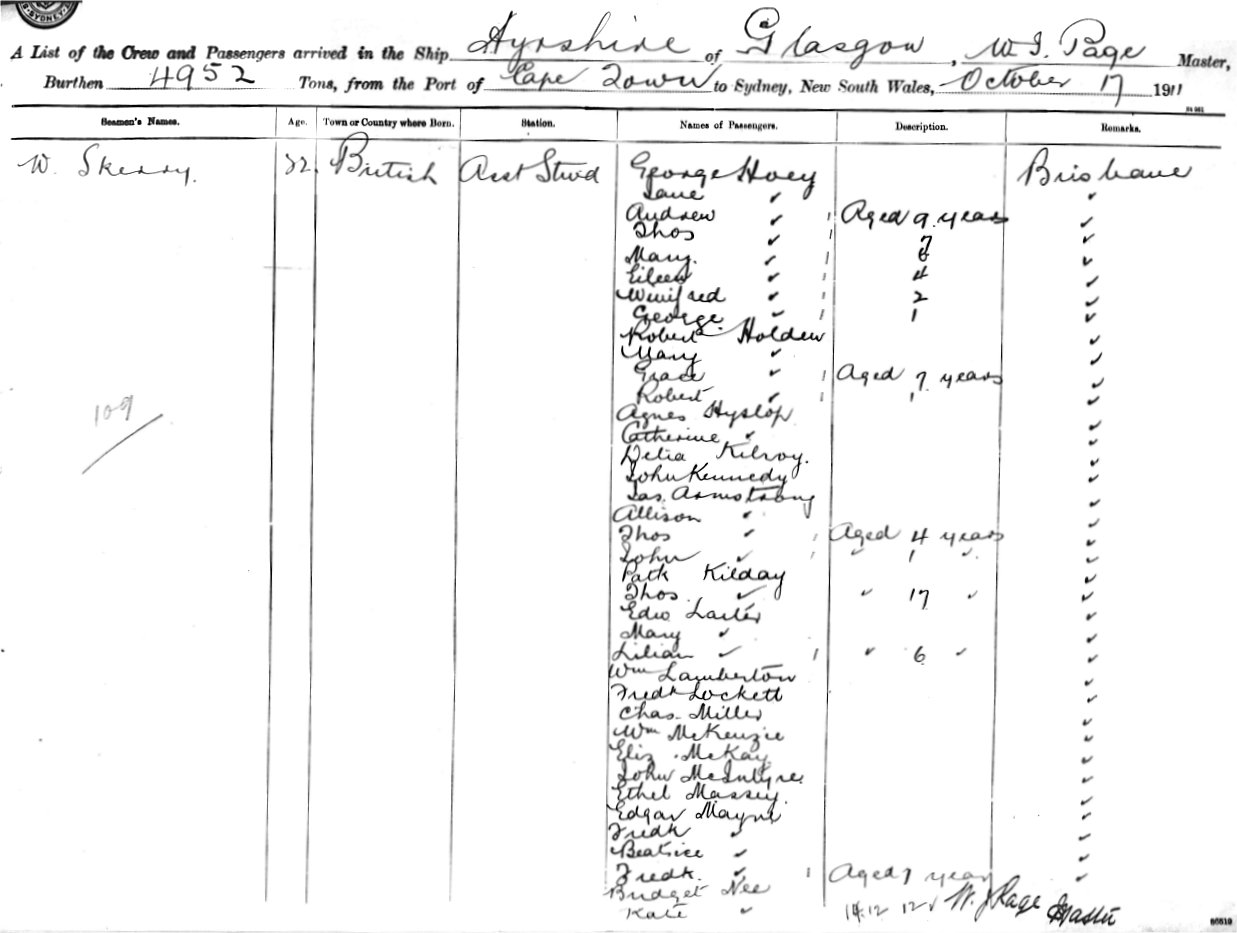 SYDNEY
A List of the Crew and Passengers arrived in the Ship Ayrshire of Glasgow, W. J. Page Master,
Burthen 4952 Tons, from the Port of Cape Town to Sydney, New South Wales, October 17 1911
Seamen's Names. Age. Town or Country where Born. Station. Names of Passengers. Description. Remarks.
W. Skerry. 32. British Asst Stwd George Hoey Brisbane
Jane ✓ ✓
Andrew ✓ 1 Aged 9 years ✓
Thos ✓ 1 7 ✓
Mary. ✓ 1 6 ✓
Eileen ✓ 1 4 ✓
Winifred ✓ 1 2 ✓
George. ✓ 1 1 ✓
Robert Holden ✓
Mary ✓ ✓
Grace ✓ 1 Aged 7 years ✓
Robert ✓ 1 1 ✓
109
Agnes Hyslop ✓
Catherine ✓ ✓
Delia Kilroy. ✓
John Kennedy ✓
Jas. Armstrong ✓
Allison ✓ ✓
Thos ✓ 1 Aged 4 years ✓
John ✓ 1 ✓ 1 ✓ ✓
Patk Kilday ✓
Thos. ✓ ✓ 17 ✓ ✓
Edw Larter ✓
Mary ✓ ✓
Lilian ✓ 1 ✓ 6 ✓ ✓
Wm Lamberton ✓
Fredk Lockett ✓
Chas. Miller ✓
Wm McKenzie ✓
Eliz. McKay ✓
John McIntyre. ✓
Ethel Massey. ✓
Edgar Mayne ✓
Fredk ✓ ✓
Beatrice ✓ ✓
Fredk. ✓ 1 Aged 1 year ✓
Bridget Nee W. J. Page Master
Kate ✓